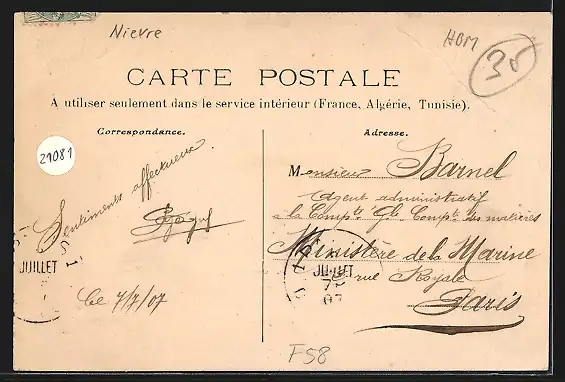 Nievre
HOM
35
CARTE POSTALE
A utiliser seulement dans le service intérieur (France, Algérie, Tunisie).
Correspondance.
21081
Sentiments affectueux.
JUILLET
Le 7/7/07
Adresse.
Monsieur Barnel
Agent administratif
à la Compte Gle Compte des matières
Ministère de la Marine
rue Royale
Paris
JUILLET
F58